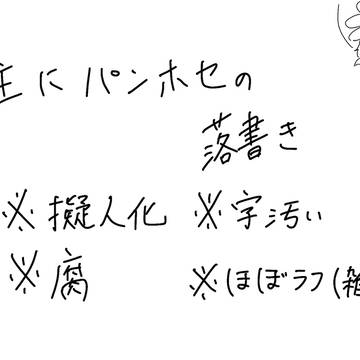 主にパンホセの
落書き
※擬人化 ※字汚い
※腐 ※ほぼラフ(雑